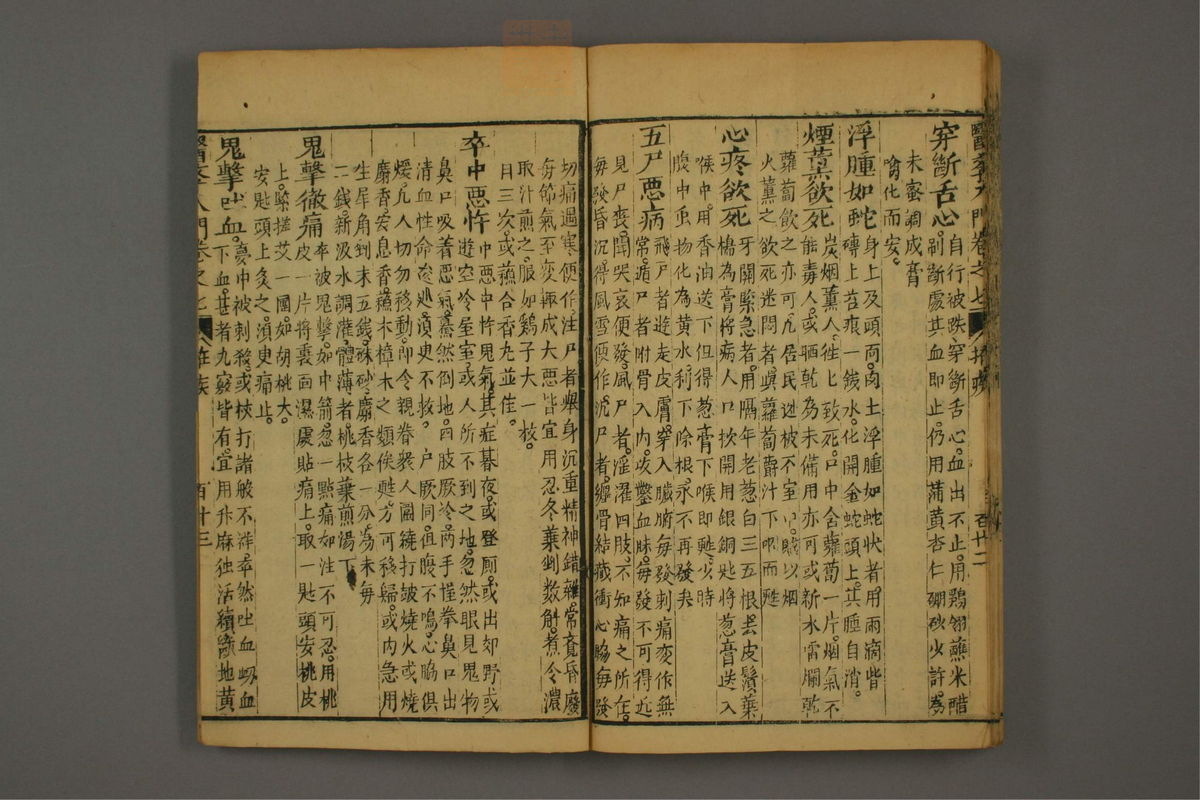 醫學入門卷之七 拾遺 百廿二
穿斷舌心 自行被跌穿斷舌心血出不止用鵝翎蘸米醋
刷斷處其血即止仍用蒲黃杏仁硼砂少許為
末蜜調成膏
噙化而安
浮腫如蛇 身上及頭面肉上浮腫如蛇狀者用雨滴堦
磚上苔痕一錢水化開塗蛇頭上其腫自消
煙薰欲死 炭烟薰人往上致死口中含蘿蔔一片烟氣不
能毒人或晒乾為末備用亦可或新水擂爛乾
蘿蔔飲之亦可凡居民逃被不室以賊以烟
火薰之欲死迷悶者與蘿蔔嚼汁下咽而甦
心疼欲死 牙關緊急者用隔年老葱白三五根去皮鬚葉
擣為膏將病人口抉開用銀銅匙將葱膏送入
喉中用香油送下但得葱膏下喉即甦少時
腹中虫物化為黃水利下除根永不再發矣
五尸惡病 飛尸者遊走皮膚穿入臟腑每發刺痛変作無
常遁尸者附骨入肉攻鑿血脉每發不可得近
見尸喪聞哭哀便發風尸者淫濯四肢不知痛之所在
每發昏沉得風雪便作沉尸者纏骨結藏衝心脇每發
切痛遇寒便作注尸者舉身沉重精神錯雜常覺昏廢
每節氣至変輒成大惡皆宜用忍冬葉剉數斛煮令濃
取汁煎之服如鷄子大一枚
日三次或蘇合香丸並佳
卒中惡忤 中惡中忤鬼氣其症暮夜或登厠或出郊野或
遊空冷室或人所不到之地忽然眼見鬼物
鼻口吸着惡氣驀然倒地四肢厥冷兩手握拳鼻口出
清血性命逡廵須臾不救 尸厥同但腹不鳴心脇俱
煖凡人切勿移動即令親眷衆人圍繞打皷燒火或燒
麝香安息香蘇木樟木之類俟甦方可移歸或內急用
生犀角剉末五錢硃砂麝香各一分為末每
二錢新汲水調灌體薄者桃枝葉煎湯下
鬼擊徹痛 卒被鬼擊如中箭忽一點痛如注不可忍用桃
皮一片將裏面濕處貼痛上取一匙頭安桃皮
上緊搓艾一團如胡桃大
安匙頭上灸之須臾痛止
鬼擊吐血 夢中被刺殺或杖打諸般不祥卒然吐血衂血
下血甚者九竅皆有宜用升麻独活續斷地黃
醫學入門卷之七 雜疾 百廿三